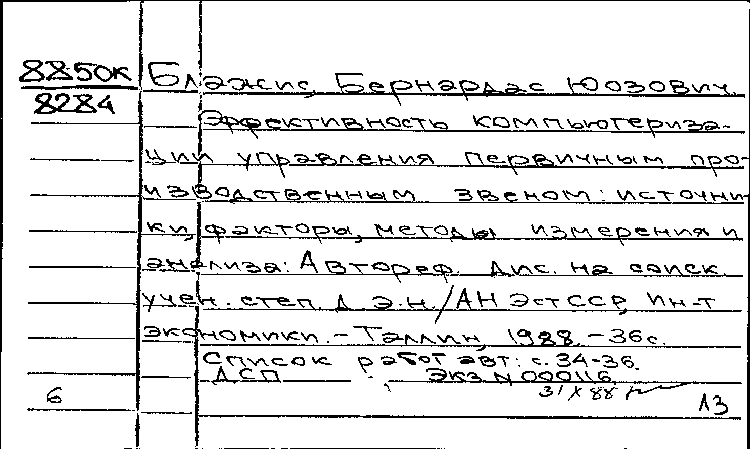 8850к Блажис, Бернардас Юозович.
8284
Эффективность компьютериза-
ции управления первичным про-
изводственным звеном: источни-
ки, факторы, методы измерения и
анализа: Автореф. дис. на соиск.
учен. степ. д.э.н./АН ЭстССР, Ин-т
экономики. - Таллин, 1988. - 36с.
Список работ авт.: с. 34-36.
ДСП Экз N 000116
31 X 88
6
13